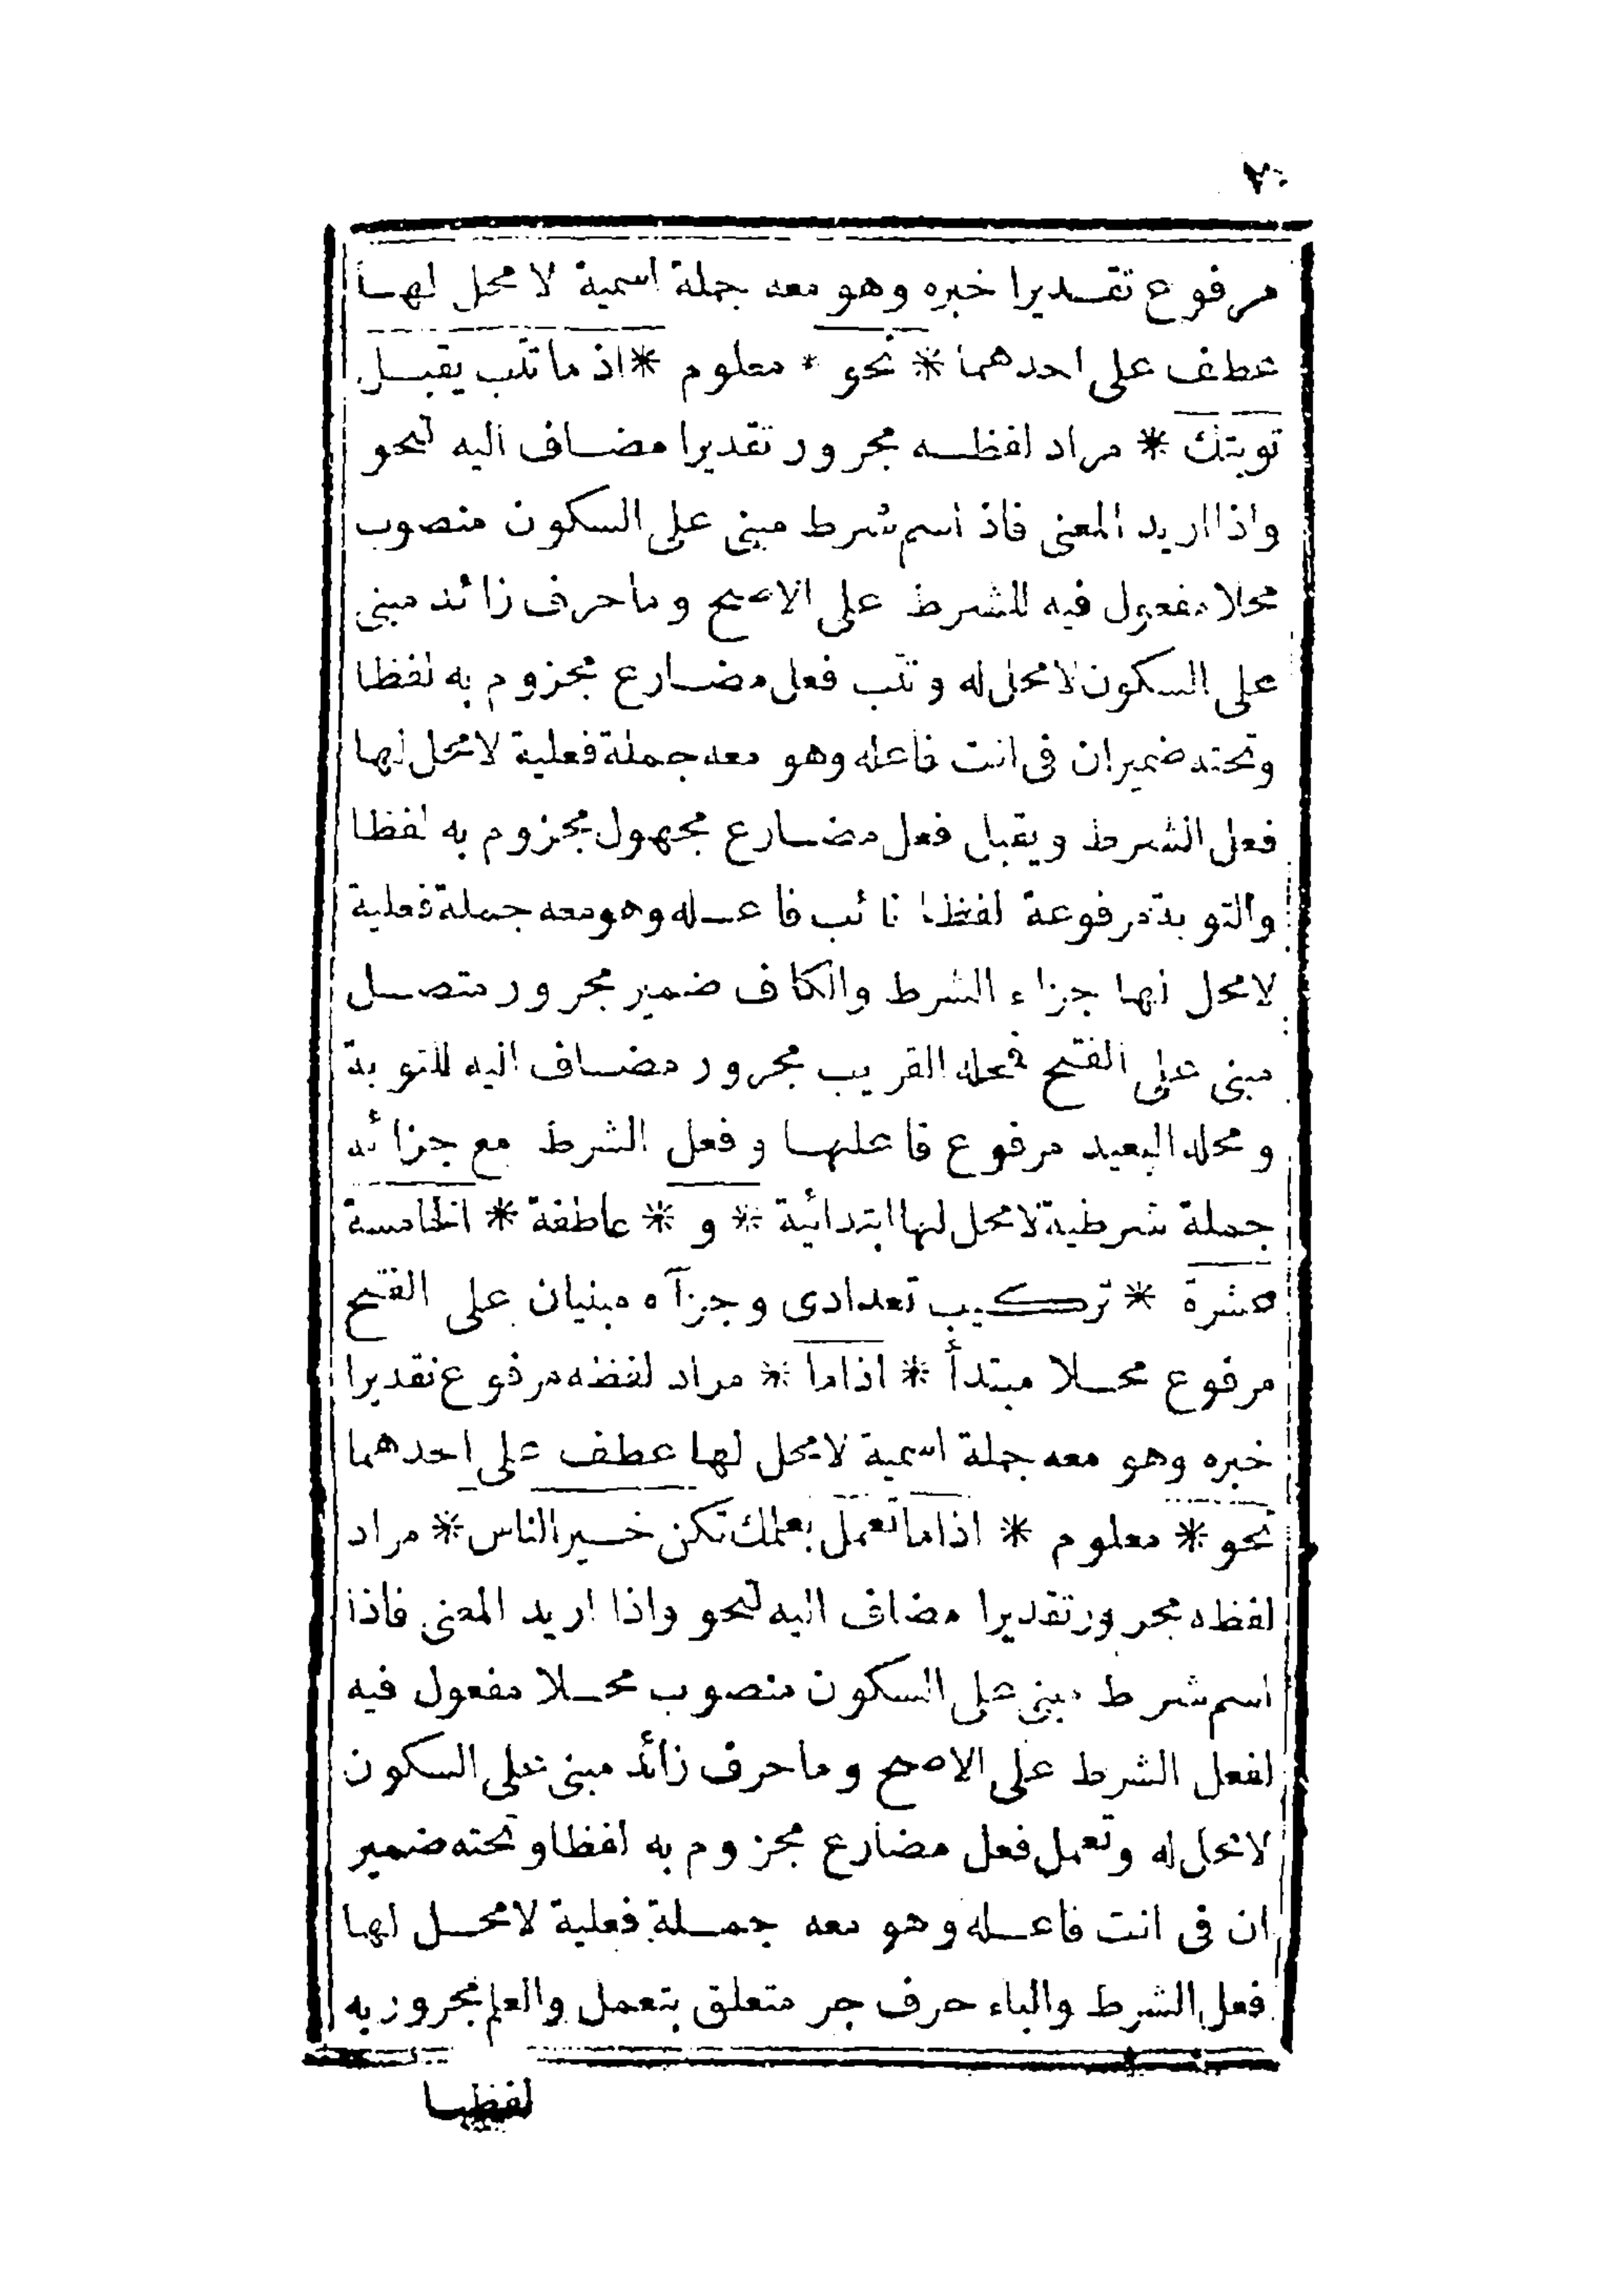 ٧٠
مرفوع تقديرا خبره وهو معه جملة اسمية لا محل لها
عطف على احدهما * نحو * معلوم * اذ ما تتب يقبل
توبتك * مراد لفظه مجرور تقديرا مضاف اليه لنحو
واذا اريد المعنى فاذ اسم شرط مبنى على السكون منصوب
محلا مفعول فيه للشرط على الاصح وما حرف زائد مبنى
على السكون لا محل له وتتب فعل مضارع مجزوم به لفظا
وتحته ضمير ان فى انت فاعله وهو معه جملة فعلية لا محل لها
فعل الشرط ويقبل فعل مضارع مجهول مجزوم به لفظا
والتوبة مرفوعة لفظا نائب فاعله وهو معه جملة فعلية
لا محل لها جزاء الشرط والكاف ضمير مجرور متصل
مبنى على الفتح فمحله القريب مجرور مضاف اليه للتوبة
ومحله البعيد مرفوع فاعلها وفعل الشرط مع جزائه
جملة شرطية لا محل لها ابتدائية * و * عاطفة * الخامسة
عشرة * تركيب تعدادى وجزآه مبنيان على الفتح
مرفوع محلا مبتدأ * اذاما * مراد لفظه مرفوع تقديرا
خبره وهو معه جملة اسمية لا محل لها عطف على احدهما
نحو * معلوم * اذاما تعمل بعلمك تكن خير الناس * مراد
لفظه مجرور تقديرا مضاف اليه لنحو واذا اريد المعنى فاذا
اسم شرط مبنى على السكون منصوب محلا مفعول فيه
لفعل الشرط على الاصح وما حرف زائد مبنى على السكون
لا محل له وتعمل فعل مضارع مجزوم به لفظا وتحته ضمير
ان فى انت فاعله وهو معه جملة فعلية لا محل لها
فعل الشرط والباء حرف جر متعلق بتعمل والعلم مجرور به
لفظا